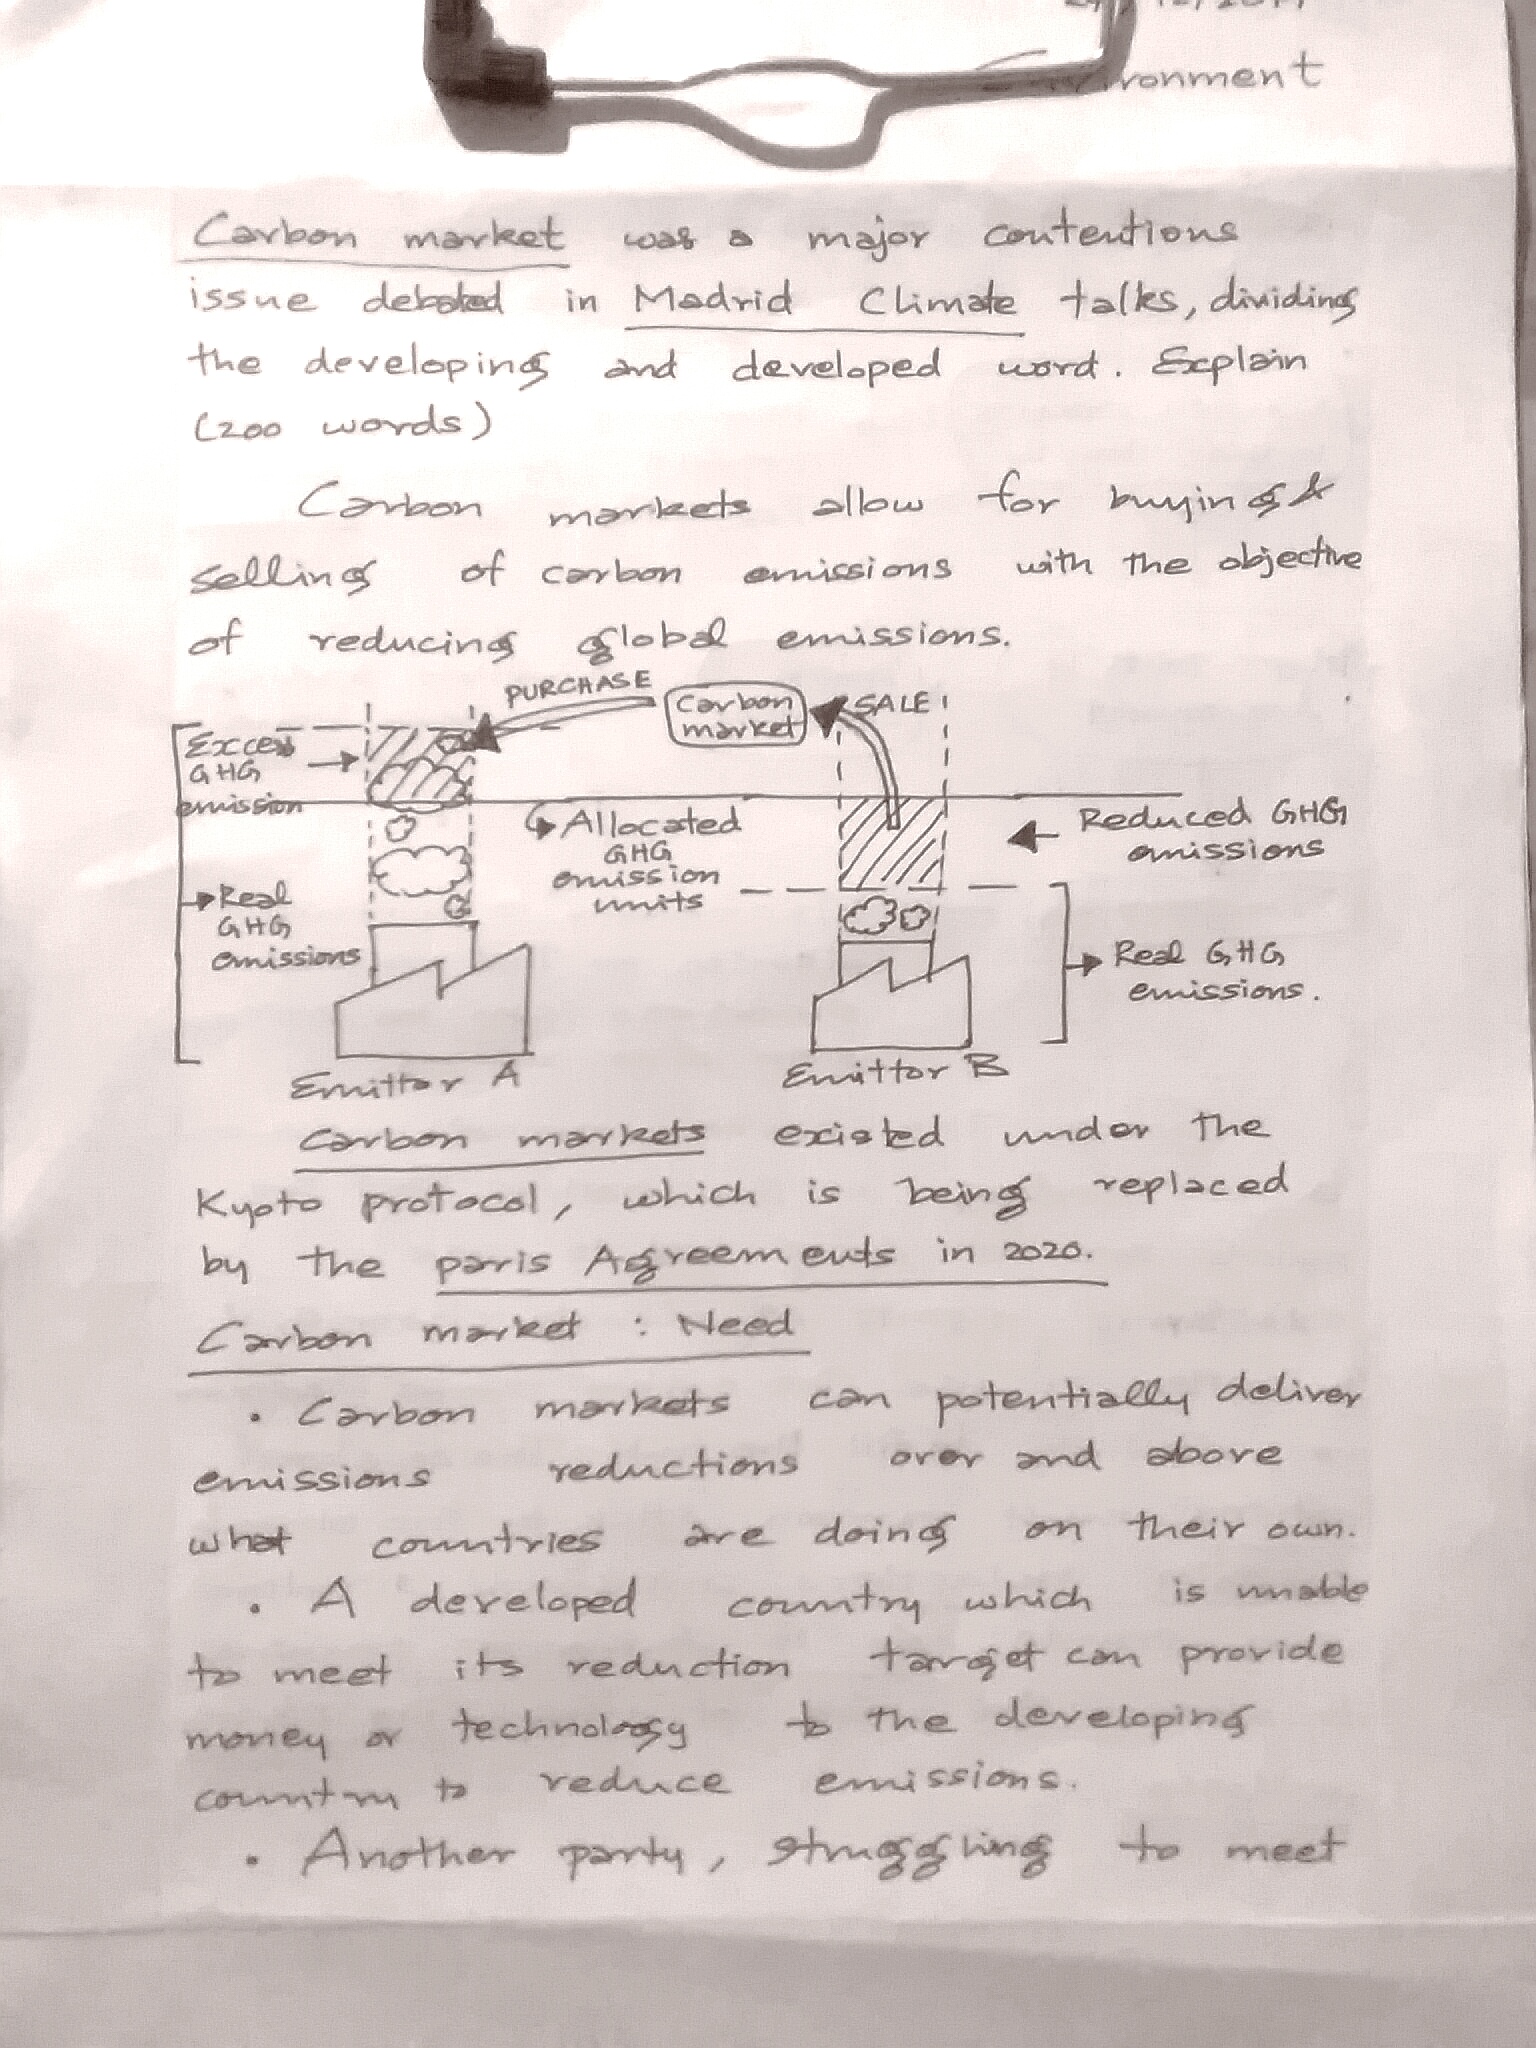 Carbon market was a major contentions
issue debated in Madrid Climate talks, dividing
the developing and developed word. Explain
(200 words)
Carbon markets allow for buying &
selling of carbon emissions with the objective
of reducing global emissions.
PURCHASE
Carbon
market
SALE
Excess
GHG
emission
Allocated
GHG
emission
units
Reduced GHG
emissions
Real
GHG
emissions
Real GHG
emissions.
Emittor A
Emittor B
Carbon markets existed under the
Kyoto protocol, which is being replaced
by the paris Agreements in 2020.
Carbon market : Need
• Carbon markets can potentially deliver
emissions reductions over and above
what countries are doing on their own.
• A developed country which is unable
to meet its reduction target can provide
money or technology to the developing
country to reduce emissions.
• Another party, struggling to meet